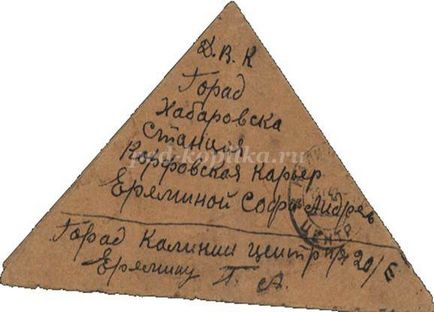 Д. В. К
Горад
Хабаровска
станция
Корфовская Карьер
Еряминой Софи Андрев
Горад Калинин центр п/я 20/Е
Ерямину П. А.
ped-kopilka.ru